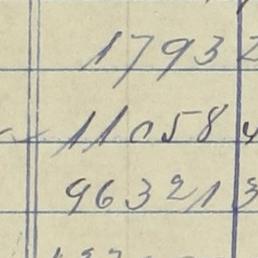 1793 2
11058 4
96321 3